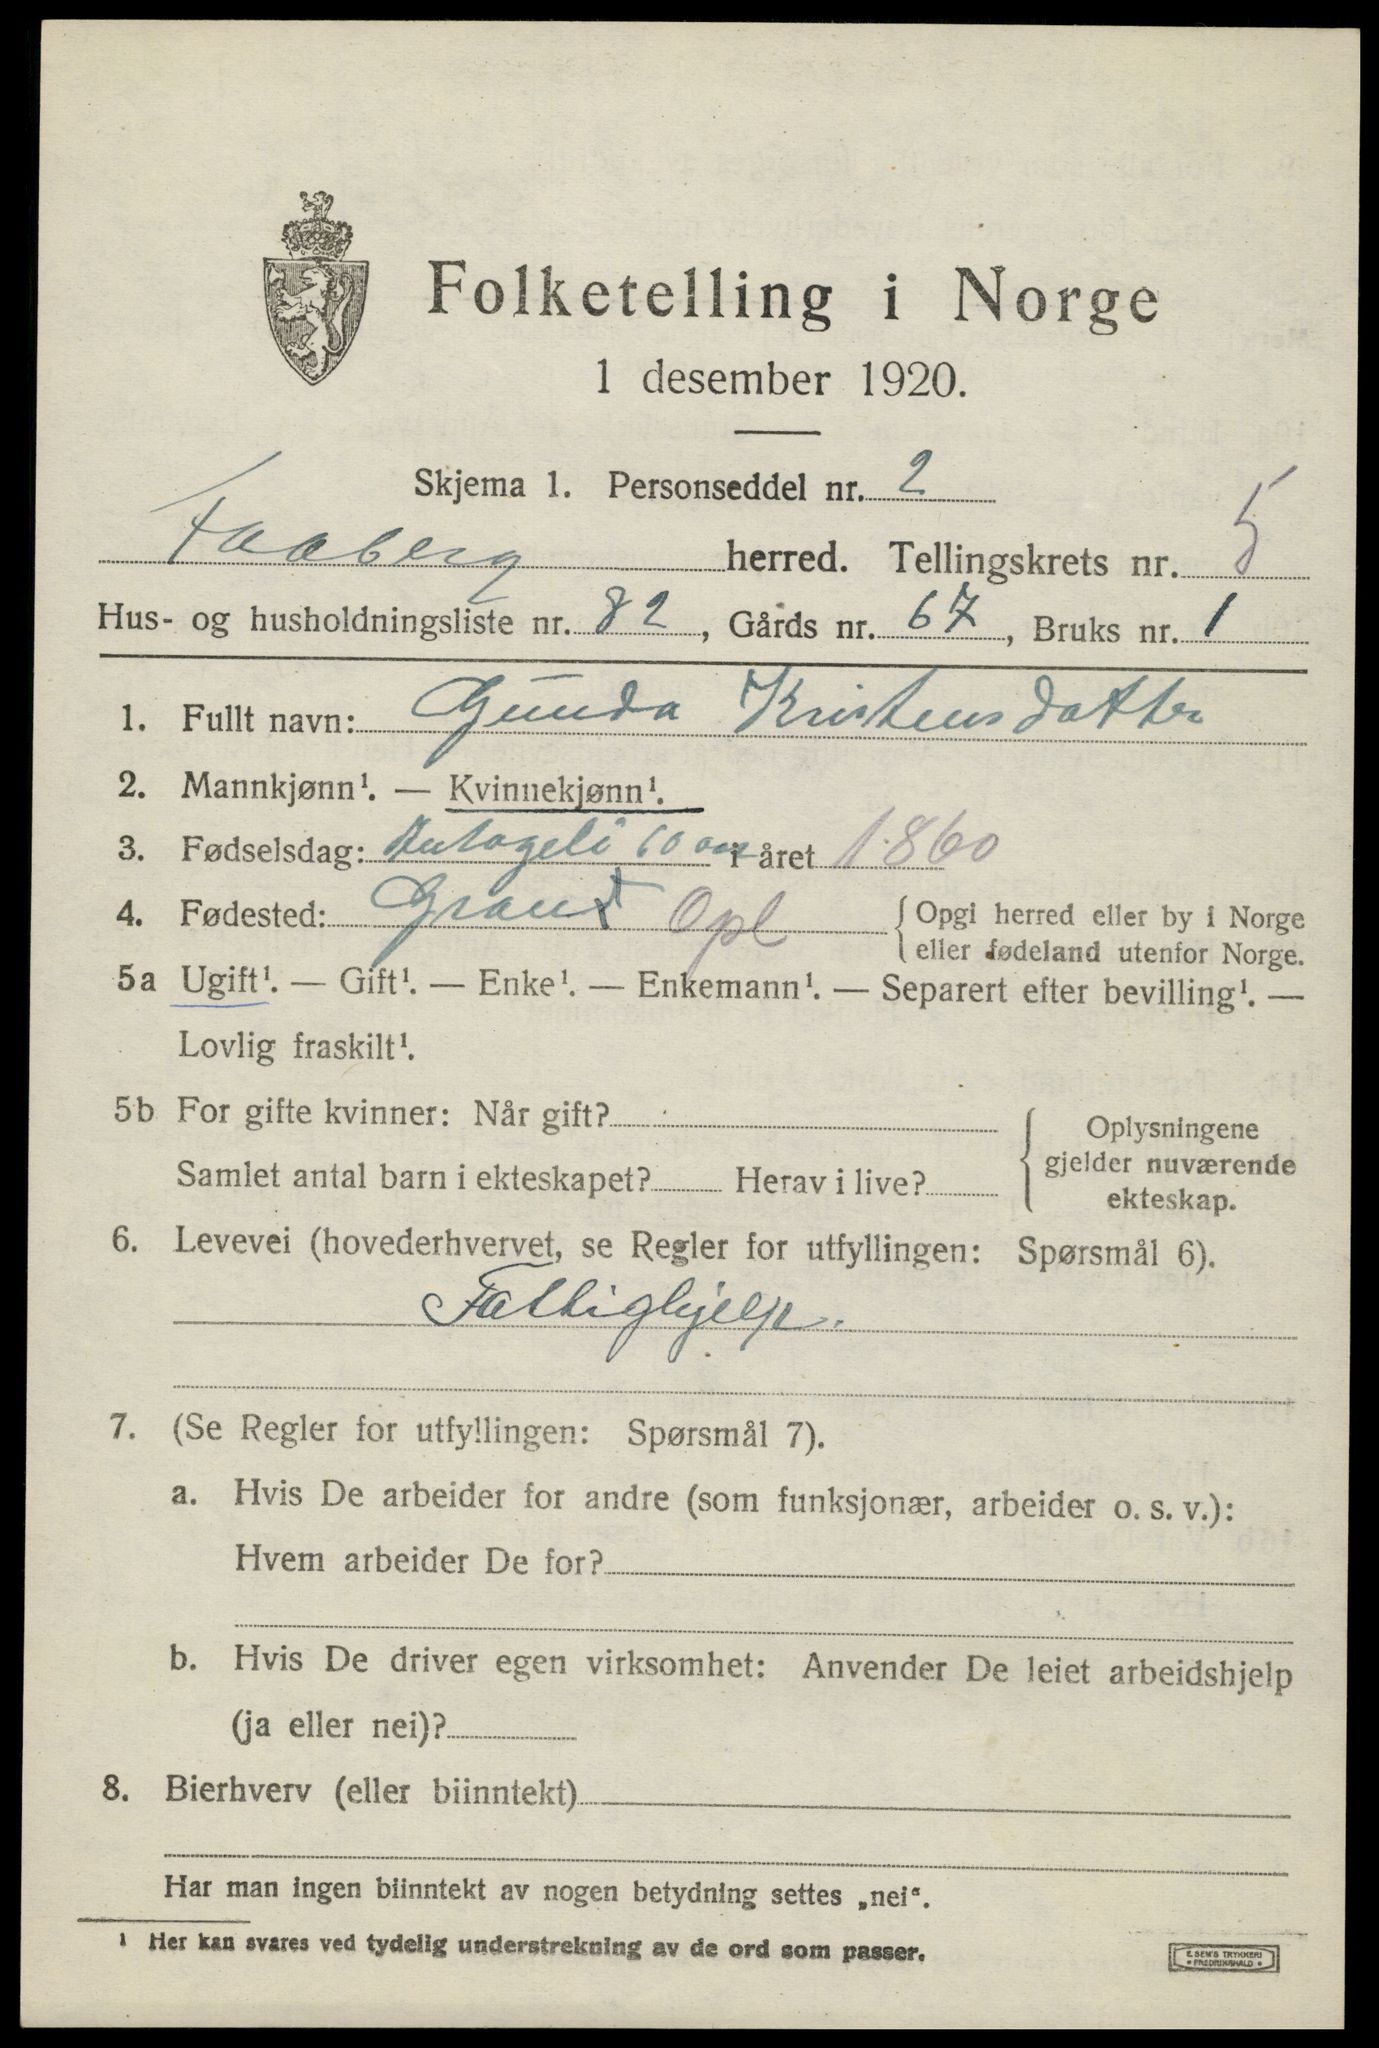 Folketelling i Norge
1 desember 1920.
Skjema 1. Personseddel nr. 2
Faaberg herred. Tellingskrets nr. 5
Hus- og husholdningsliste nr. 82, Gårds nr. 67, Bruks nr. 1
1. Fullt navn: Gunda Kristensdatter
2. Mannkjønn¹. — Kvinnekjønn¹.
3. Fødselsdag: Antageli 60 aar i året 1860
4. Fødested: Opl {Opgi herred eller by i Norge
eller fødeland utenfor Norge.
5a Ugift¹. — Gift¹. — Enke¹. — Enkemann¹. — Separert efter bevilling¹. —
Lovlig fraskilt¹.
5b For gifte kvinner: Når gift? { Oplysningene
gjelder nuværende
Samlet antal barn i ekteskapet? Herav i live?
ekteskap.
6. Levevei (hovederhvervet, se Regler for utfyllingen: Spørsmål 6).
Fattighjelp.
7. (Se Regler for utfyllingen: Spørsmål 7).
a. Hvis De arbeider for andre (som funksjonær, arbeider o. s. v.):
Hvem arbeider De for?
b. Hvis De driver egen virksomhet: Anvender De leiet arbeidshjelp
(ja eller nei)?
8. Bierhverv (eller biinntekt)
Har man ingen biinntekt av nogen betydning settes „nei“.
¹ Her kan svares ved tydelig understrekning av de ord som passer.
E. SEM'S TRYKKERI
• FREDRIKSHALD •